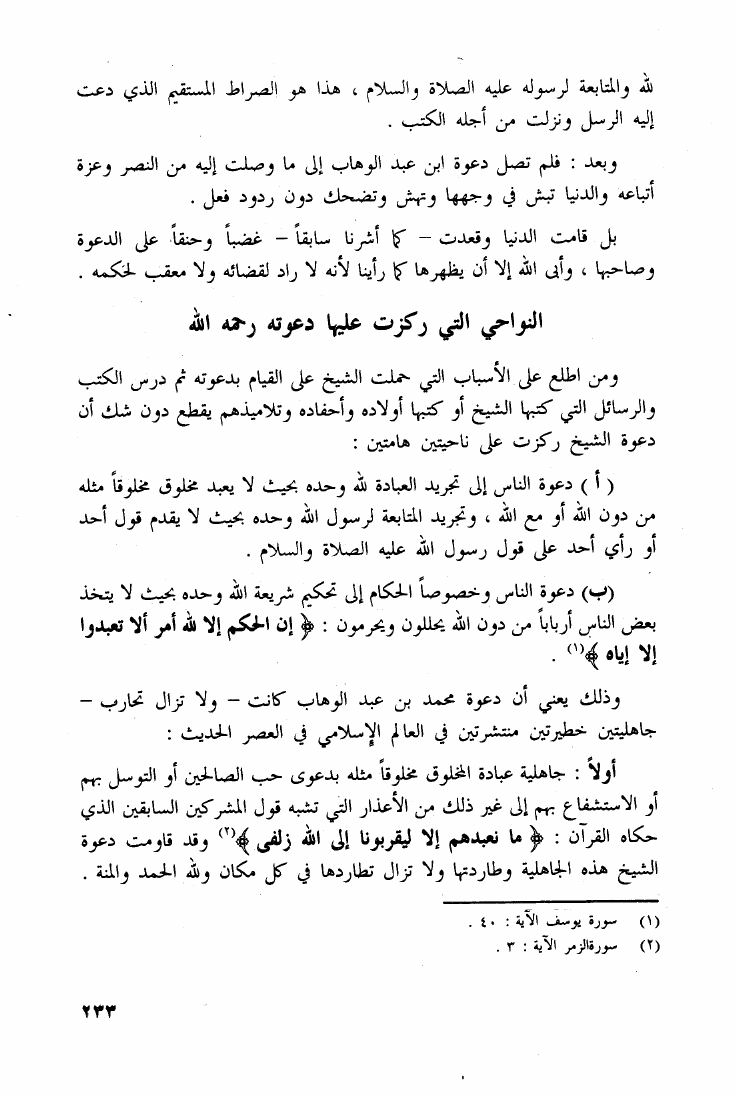 لله والمتابعة لرسوله عليه الصلاة والسلام ، هذا هو الصراط المستقيم الذي دعت
إليه الرسل ونزلت من أجله الكتب .
وبعد : فلم تصل دعوة ابن عبد الوهاب إلى ما وصلت إليه من النصر وعزة
أتباعه والدنيا تبش في وجهها وتهش وتضحك دون ردود فعل .
بل قامت الدنيا وقعدت – كما أشرنا سابقاً – غضباً وحنقاً على الدعوة
وصاحبها ، وأبى الله إلا أن يظهرها كما رأينا لأنه لا راد لقضائه ولا معقب لحكمه .
النواحي التي ركزت عليها دعوته رحمه الله
ومن اطلع على الأسباب التي حملت الشيخ على القيام بدعوته ثم درس الكتب
والرسائل التي كتبها الشيخ أو كتبها أولاده وأحفاده وتلاميذهم يقطع دون شك أن
دعوة الشيخ ركزت على ناحيتين هامتين :
( أ ) دعوة الناس إلى تجريد العبادة لله وحده بحيث لا يعبد مخلوق مخلوقاً مثله
من دون الله أو مع الله ، وتجريد المتابعة لرسول الله وحده بحيث لا يقدم قول أحد
أو رأي أحد على قول رسول الله عليه الصلاة والسلام .
(ب) دعوة الناس وخصوصاً الحكام إلى تحكيم شريعة الله وحده بحيث لا يتخذ
بعض الناس أرباباً من دون الله يحللون ويحرمون : ﴿ إن الحكم إلا لله أمر ألا تعبدوا
إلا إياه ﴾(١) .
وذلك يعني أن دعوة محمد بن عبد الوهاب كانت – ولا تزال تحارب –
جاهليتين خطيرتين منتشرتين في العالم الإسلامي في العصر الحديث :
أولاً : جاهلية عبادة المخلوق مخلوقاً مثله بدعوى حب الصالحين أو التوسل بهم
أو الاستشفاع بهم إلى غير ذلك من الأعذار التي تشبه قول المشركين السابقين الذي
حكاه القرآن : ﴿ ما نعبدهم إلا ليقربونا إلى الله زلفى ﴾(٢) وقد قاومت دعوة
الشيخ هذه الجاهلية وطاردتها ولا تزال تطاردها في كل مكان ولله الحمد والمنة .
(١) سورة يوسف الآية : ٤٠ .
(٢) سورةالزمر الآية : ٣ .
٢٣٣